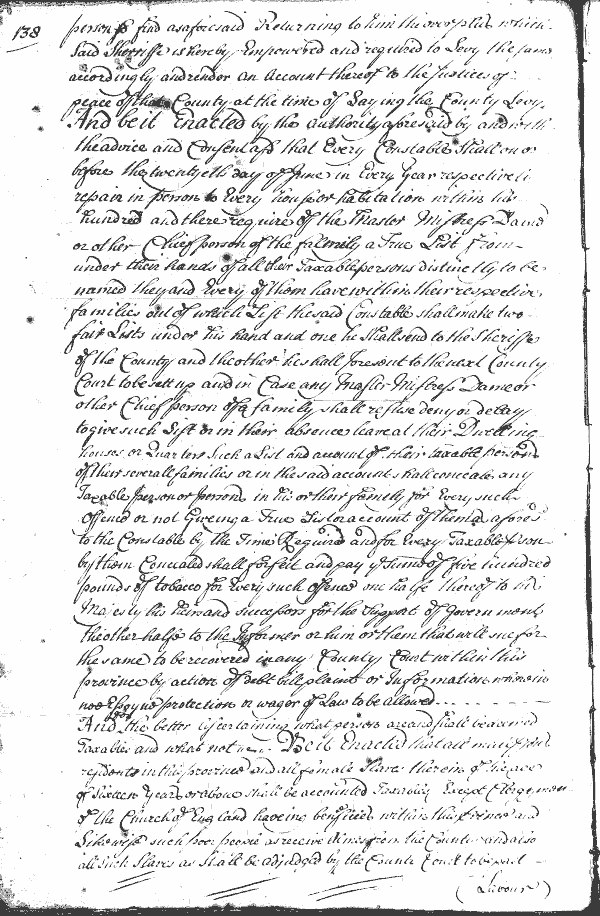 138
person so find as aforesaid Returning to him the overplus which
Said Sherriffe is hereby Empowered and required to Levy the same
accordingly and render an Account thereof to the Justices of
peace of that County at the time of Laying the County Levy.
And be it Enacted by the authority aforesaid by and with
the advice and Consent afd that Every Constable Shall on or
before the twentyeth day of June in Every Year respectively
repair in person to Every house or habitation within his
hundred and there require of the Master Mistress Dame
or other Chief person of the familly a True List from
under their hands of all their Taxable persons distinctly to be
named they and Every of them have within their respective
families out of which List the said Constable shall make two
fair Lists under his hand and one he Shall send to the Sheriffe
of the County and the other he shall present to the next County
Court to be sett up and in Case any Master Mistress Dame or
other Chief person of a family shall refuse deny or delay
to give such List or in their absence leave at their Dwelling
houses or Quarters Such a List and account of their taxable persons
of their severall families or in the said account shall conceale any
Taxable person or persons in his or their family for Every such
offence or not Giveing a True List or account of them as afores'd
to the Constable by the Time Required and for Every Taxable person
by them Concealed shall forfeit and pay ye Sume of five hundred
pounds of tobacco for Every such offence one halfe thereof to his
Majesty his heirs and successors for the Support of Government
the other halfe to the Informer or him or them that will sue for
the same to be recovered in any County Court within this
province by action of debt bill plaint or Information wherein
noe Essoyne protection or wager of Law to be allowed
And for the better ascertaining what persons are and shall be accounted
Taxables and what not Be it Enacted that all male persons
residents in this province and all female Slaves therein of the age
of Sixteen Years or above shall be accounted Taxables Except Clergymen
of the Church of England haveing benefices within this province and
Likewise such poor people as receive Almes from the County and also
all such Slaves as shall be adjudged by the County Court to be past
(Labour)